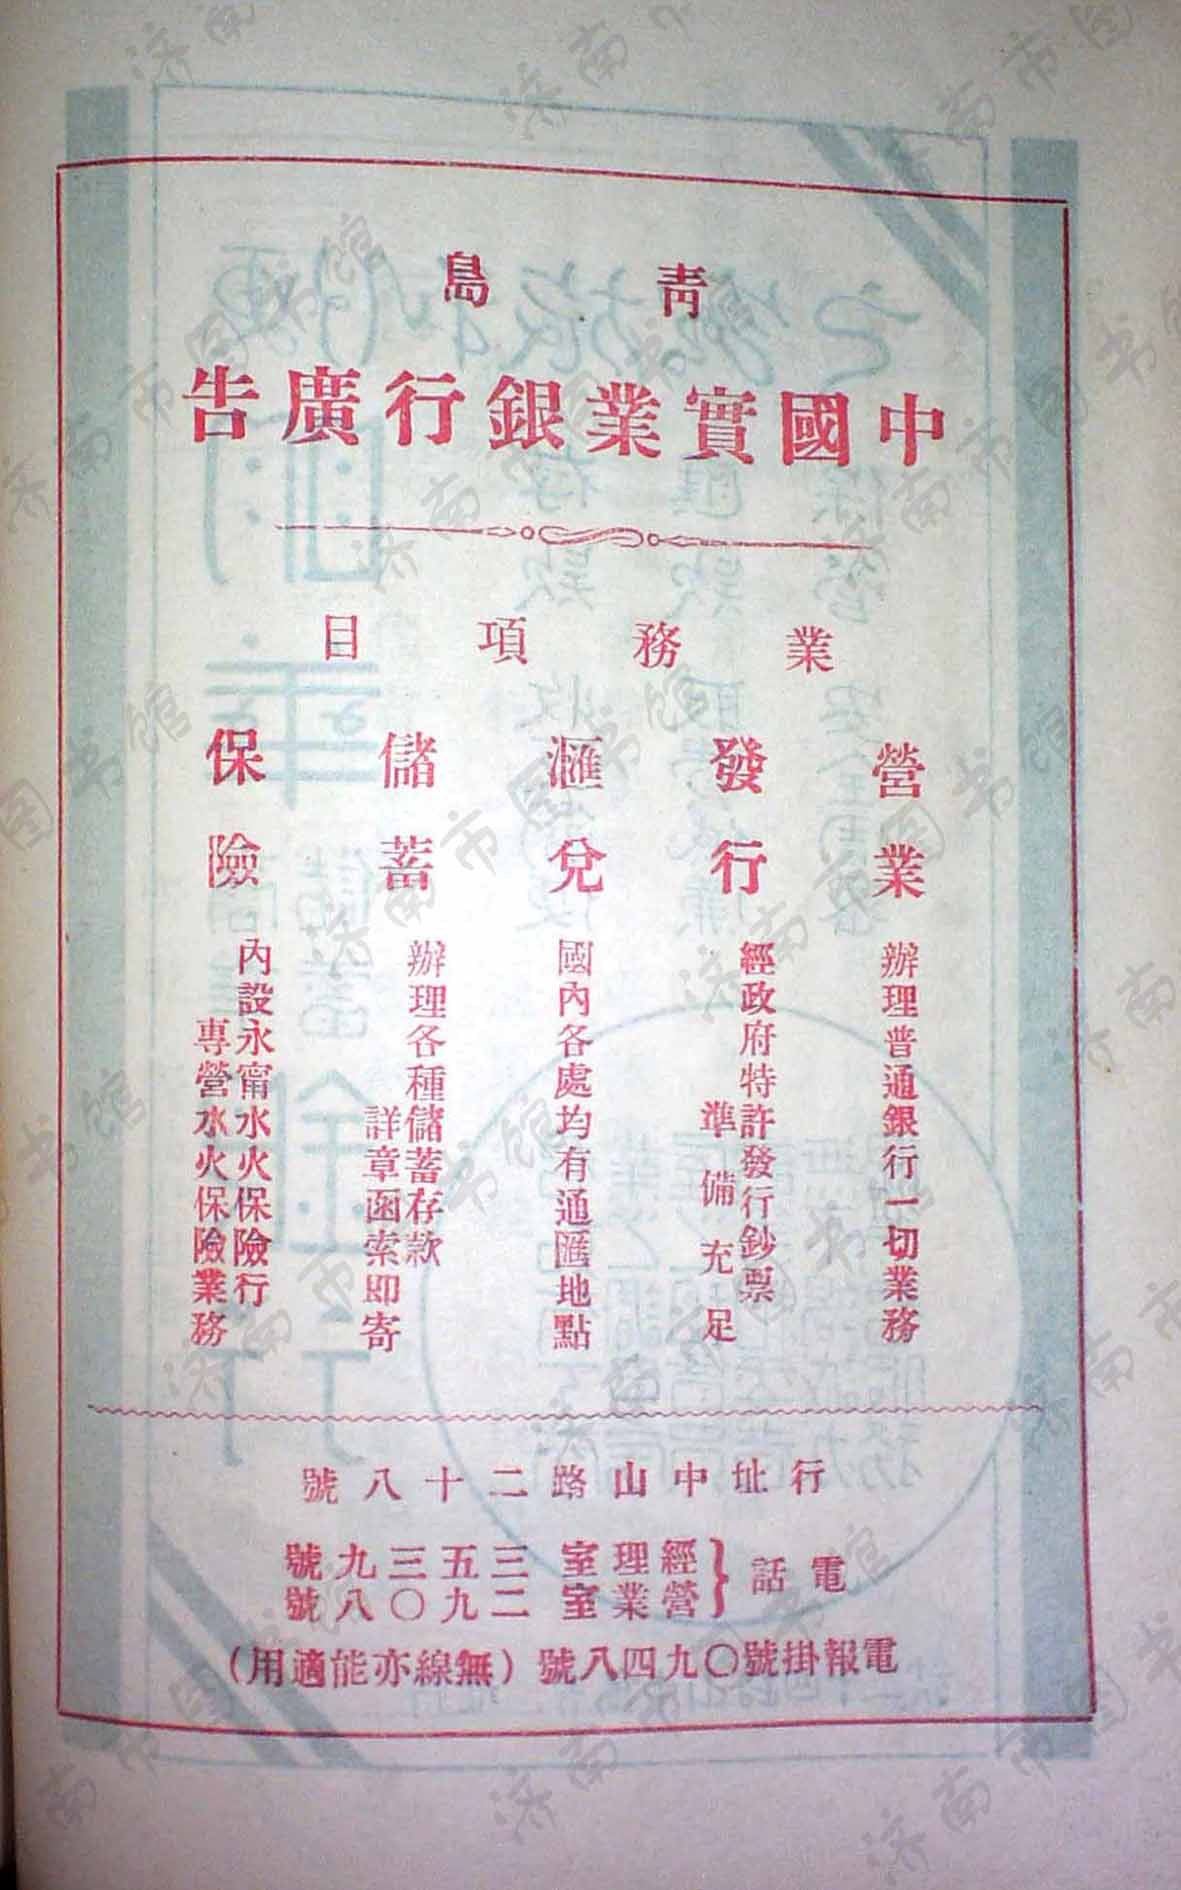 青島
中國實業銀行廣告
業務項目
營業
辦理普通銀行一切業務
發行
經政府特許發行鈔票
準備充足
滙兌
國內各處均有通匯地點
儲蓄
辦理各種儲蓄存款
詳章函索即寄
保險
內設永甯水火保險行
專營水火保險業務
行址中山路二十八號
電話
經理室三五三九號
營業室二九〇八號
電報掛號〇九四八號(無線亦能適用)
济南市图书馆